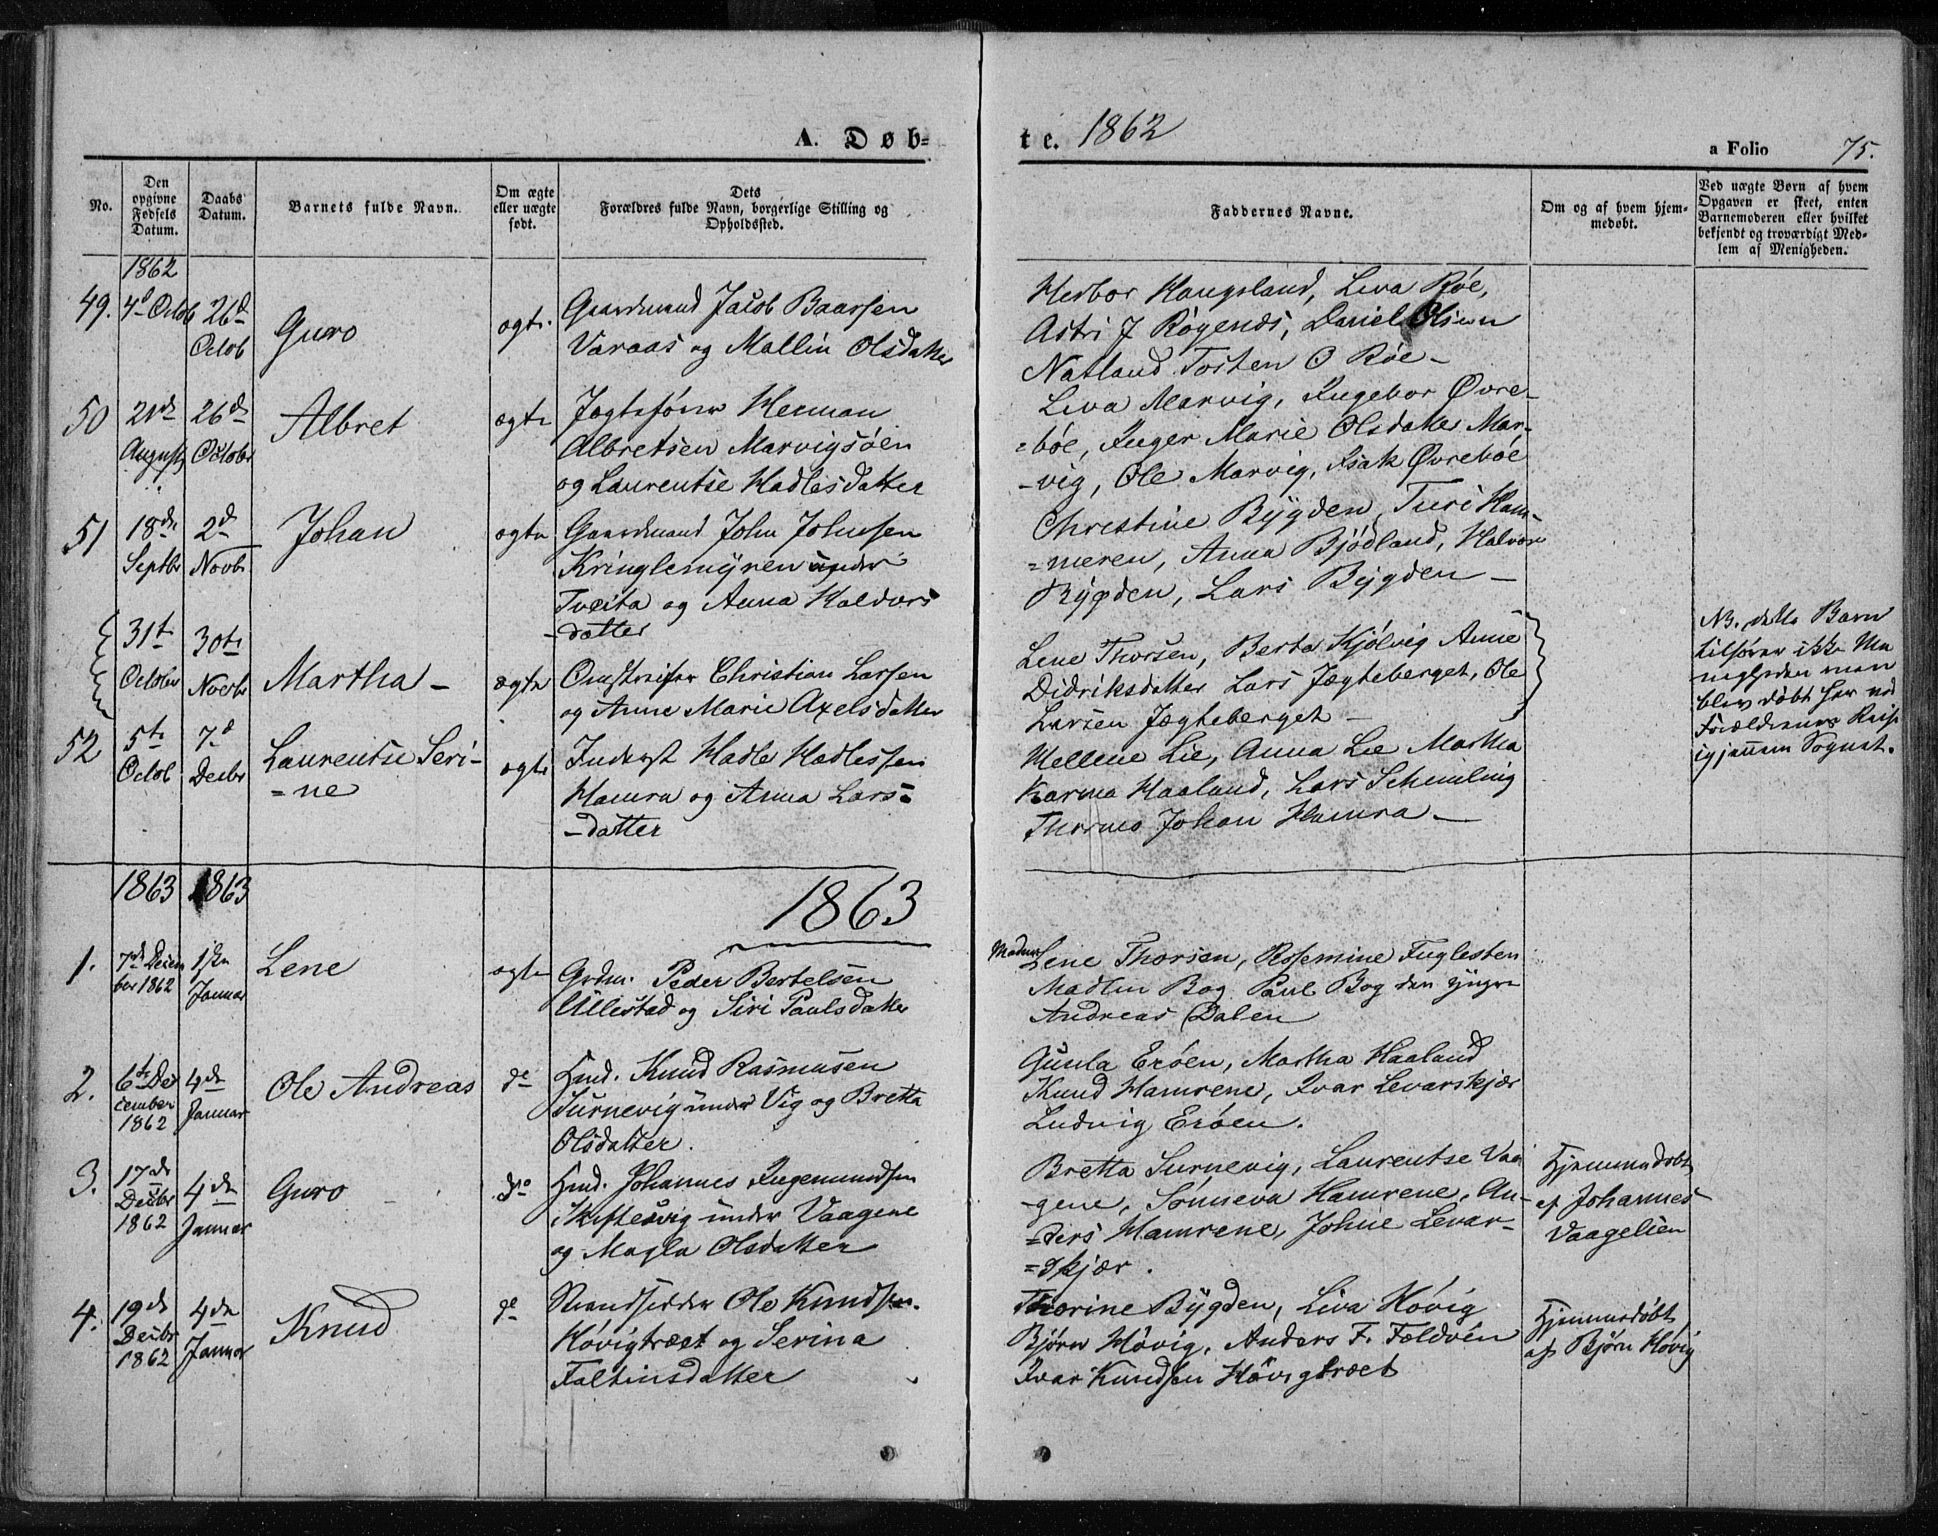 A. Døb=
te. 1862
a Folio 75.
No.
Den opgivne Fødsels Datum.
Daabs Datum.
Barnets fulde Navn.
Om ægte eller uægte født.
Dets Forældres fulde Navn, borgerlige Stilling og Opholdssted.
Faddernes Navne.
Om og af hvem hjemmedøbt.
Ved uægte Børn af hvem Opgaven er skeet, enten Barnemoderen eller hvilket bekjendt og troværdigt Medlem af Menigheden.
1862
49. 4d Octob 26d Octob Guro ægte
Gaardmand Jacob Baarsen
Varaas og Mallin Olsdatter
Herbor Haugsland, Liva Røe,
Astri J Røgenes, Daniel Olsen
Natland Tosten O Røe
50 21de August 26d Octobr Albret ægte
Jægtefører Herman
Albretsen Marvigsöen
og Laurentse Hadlesdatter
Liva Marvig, Ingebor Øvre-
=böe, Inger Marie Olsdatter Mar-
-vig, Ole Marvig, Isak Øvreböe
51 18de Septbr 2d Novbr Johan ægte
Gaardmand John Johnsen
Kringlemyren under
Tveita og Anna Haldors
-datter
Christine Bygden, Turi Ham-
=meren, Anna Bjödland, Halvor
Bygden, Lars Bygden
31te October 30te Novbr Martha ægte
Omstreifer Christian Larsen
og Anne Marie Axelsdatter
Lene Thorsen, Berta Kjölvig Anne
Didriksdatter Lars Jægteberget, Ole
Larsen Jægteberget
NB. dette Barn
tilhører ikke Me
nigheden men
blev døbt her ved
Forældrenes Reise
igjennem Sognet.
52 5te Octob 7d Decbr Laurentse Seri-
=ne ægte
Inderst Hadle Hadlessen
Hamra og Anna Lars=
-datter
Mellene Lie, Anna Lie Martha
Karina Haaland, Lars Schmiling
Thormo Johan Hamra
1863 1863
1863
1. 7de Decem
ber 1862 1ste Januar Lene ægte
Grdm. Peder Bertelsen
Ullestad og Siri Paulsdatter
Madme Lene Thorsen, Rosemine Fuglesten
Madlin Bog Paul Bog den yngre
Andreas Dalen
2. 6te De
cember
1862 4de Januar Ole Andreas do
Hmd. Knud Rasmusen
Surnevig under Vig og Bretta
Olsdatter.
Gunla Eröen, Martha Haaland
Knud Hamrene, Ivar Levarskjær
Ludvig Eröen.
3. 17de
Decbr
1862 4de Januar Guro do
Hmd. Johannes Ingemundsen
Skiftesvig under Vaagene
og Magla Olsdatter
Bretta Surnevig, Laurentse Vaa
-gene, Sönneva Hamrene, An-
=ders Hamrene, Johne Levar-
=skjær.
Hjemmedøbt
af Johannes
Vaagelien
4. 19de
Decbr
1862 4de Januar Knud do
Strandsidder Ole Knudsen.
Hövigtræet og Serina
Faltinsdatter
Thorine Bygden, Liva Hövig
Bjørn Hövig, Anders F. Foldöen
Ivar Knudsen Hövigtræet
Hjemmedøbt
af Bjørn Hövig